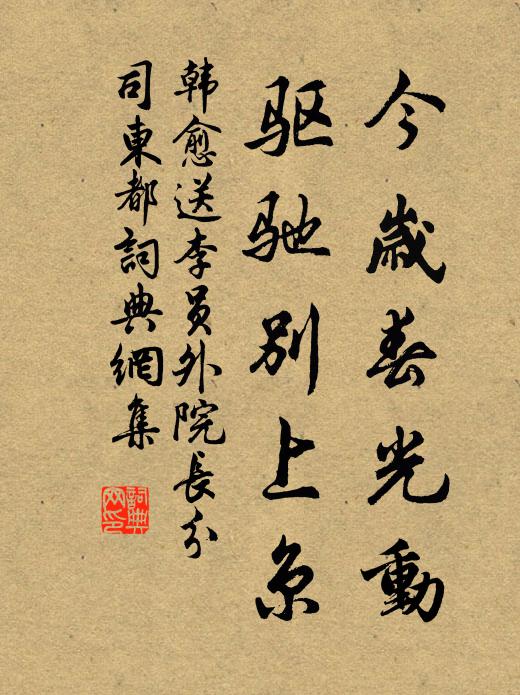 今歳春光動
驱驰别上京
韩愈送李员外院長分
司東都詞典網集
詞典網印